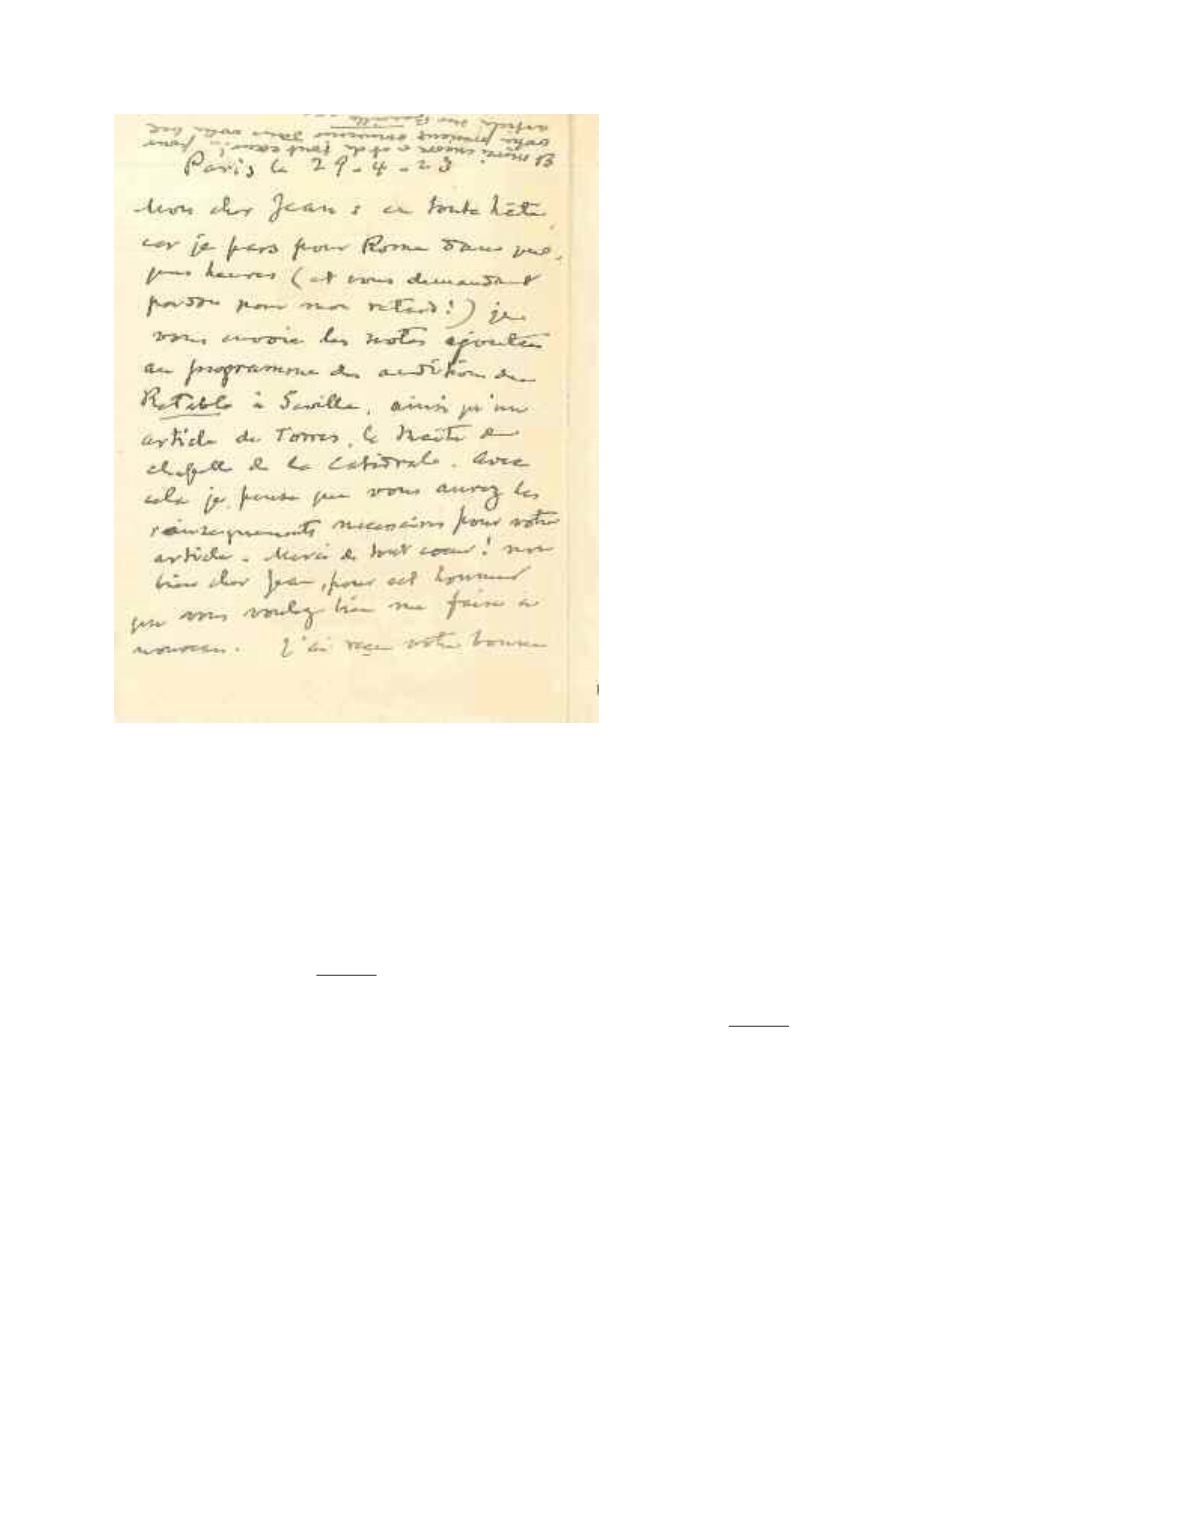 Et merci encore et de tout coeur! pour
votre précieux concours dans votre bel
article sur Séville
Paris le 29-4-23
Mon cher Jean: en toute hâte,
car je pars pour Rome dans quel-
ques heures (et vous demandant
pardon pour mon retard!) je
vous envoie les notes ajoutées
au programme des auditions du
Retablo à Séville, ainsi qu'un
article de Torres, le maître de
chapelle de la Catédrale. Avec
cela je pense que vous aurez les
renseignements necessaires pour votre
article. Merci de tout coeur! mon
bien cher Jean, pour cet honneur
que vous voulez bien me faire à
nouveau. J'ai reçu votre bonne